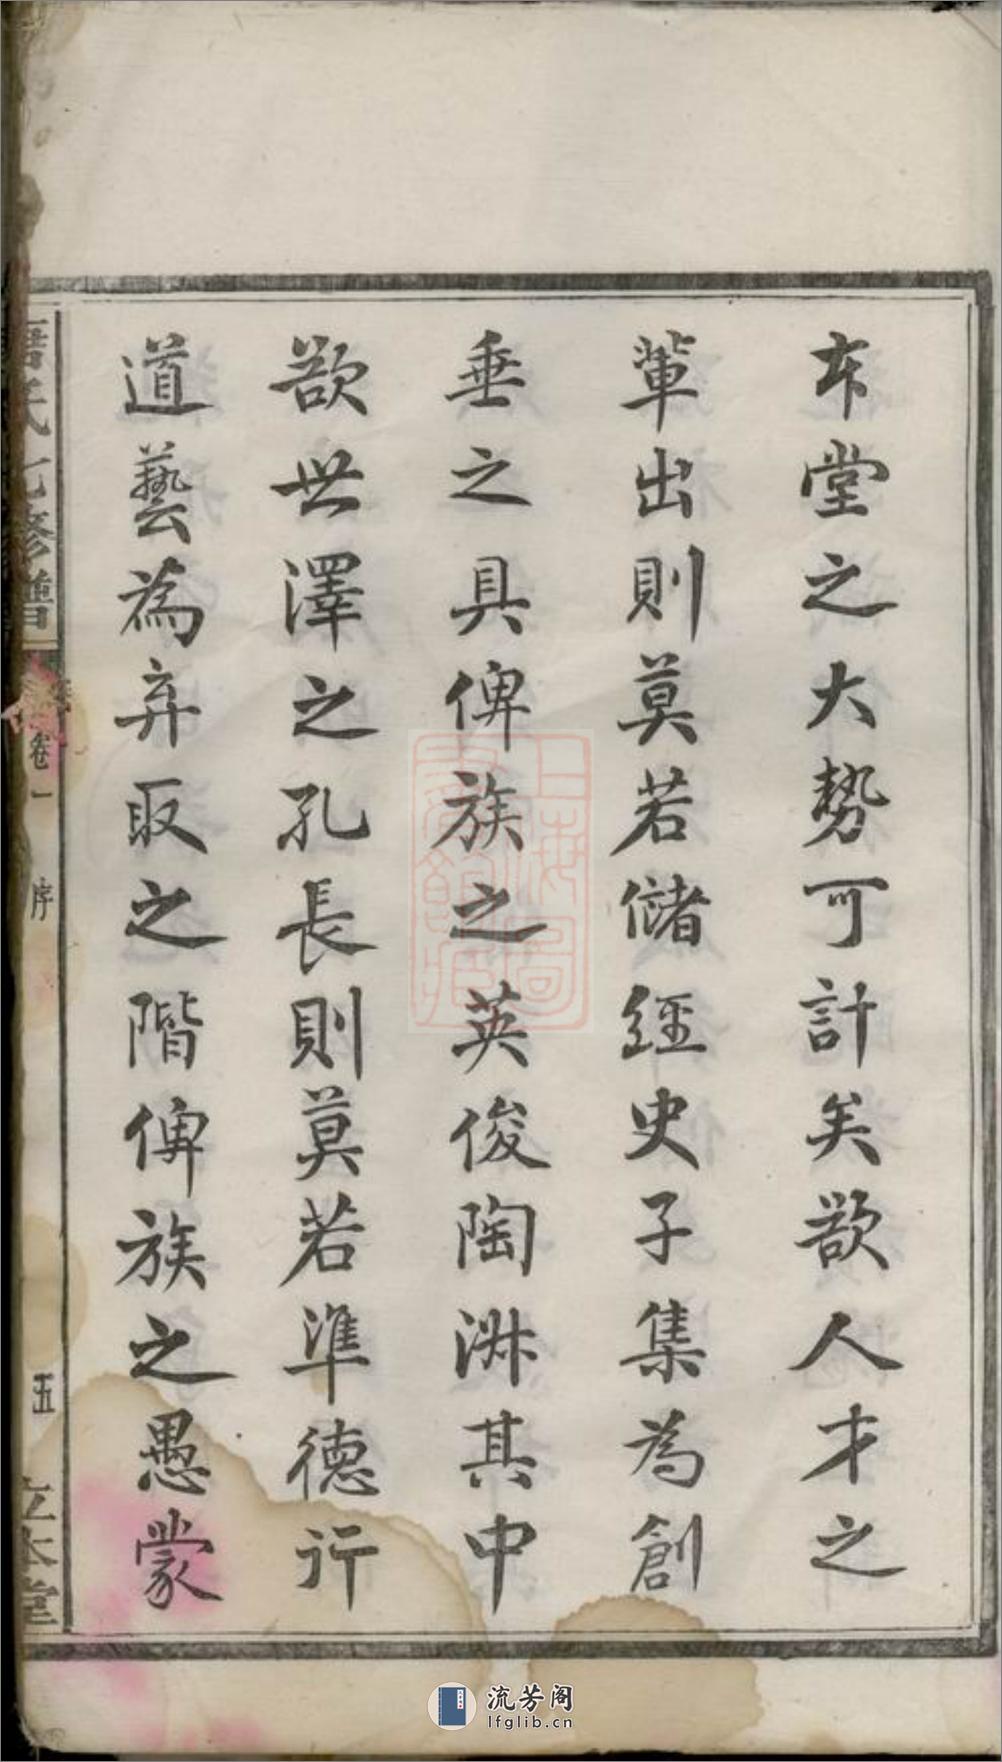 本堂之大勢可計矣欲人才之
輩出則莫若儲經史子集為創
垂之具俾族之英俊陶淋其中
欲世澤之孔長則莫若準德行
道藝為弃取之階俾族之愚蒙
氏七修譜
卷一
序
五
立本堂
上海圖書館藏
流芳阁
lfglib.cn